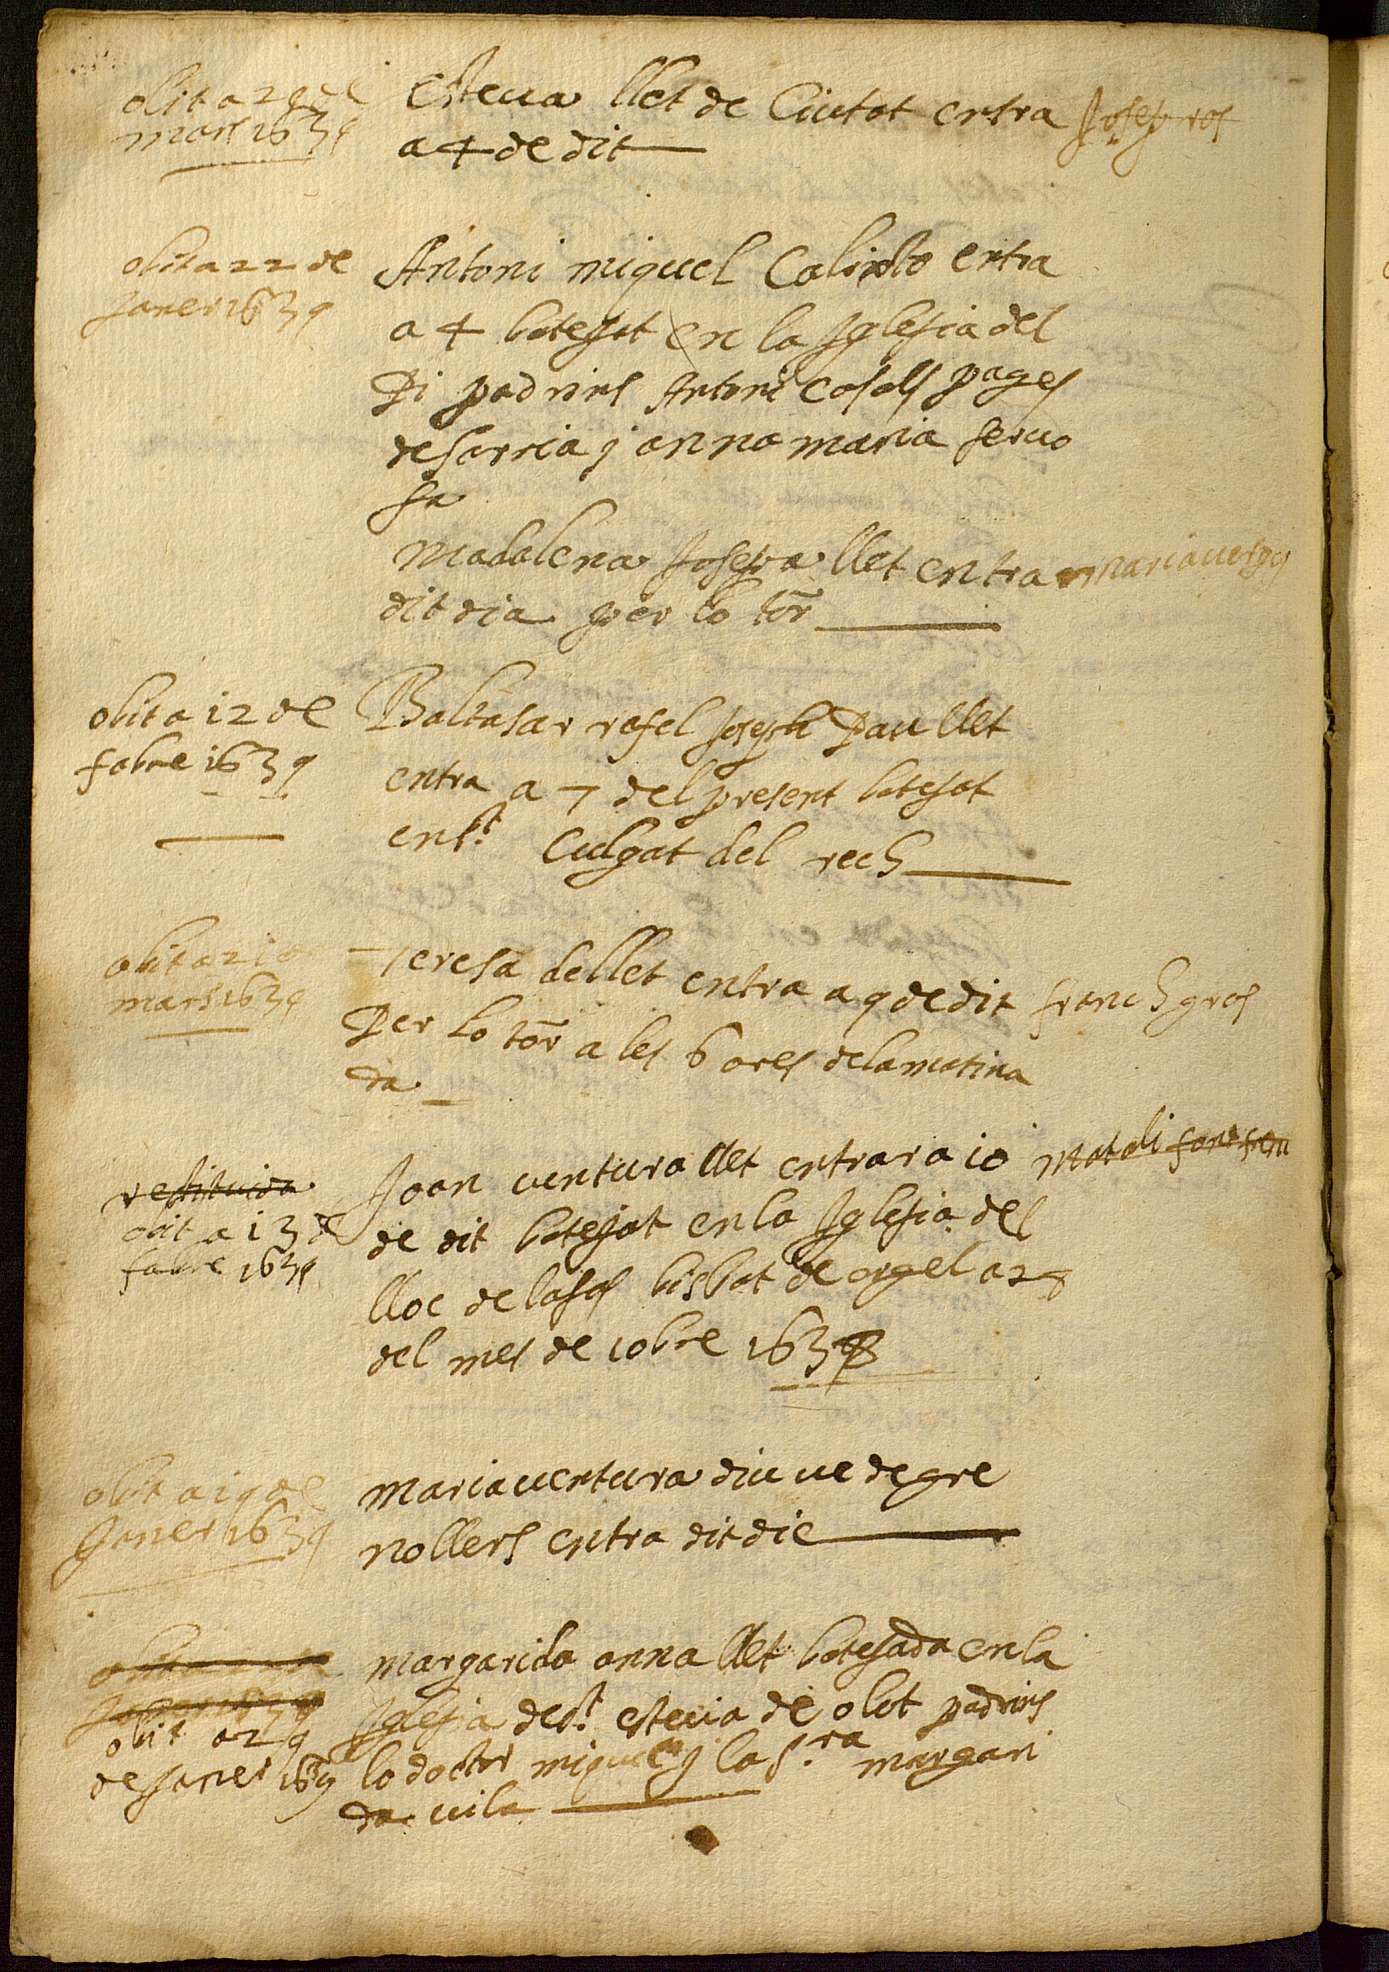 obit a 29 del
mars 1639
Esteva llet de Ciutat entra Josep ros
a 4 de dit
obit a 22 de
janer 1639
Antoni miquel Calixto entra
a 4 batejat en la Iglesia del
Pi padrins Antoni Casals pages
de sarria j anna maria servo
sa
Madalena Josepa llet entra maria verges
dit dia per lo tor
obit a 12 de
fabre 1639
Baltasar rafel Joseph Pau llet
entra a 7 del present batejat
en st. Culgat del rech
obit a 21 o
mars 1639
Teresa de llet entra a 9 de dit franch gros
Per lo tor a les 6 ores de la matina
da
restituida
obit a 13 de
fabre 1639
Joan ventura llet entrar a 10 Matali
de dit batejat en la Iglesia del
lloc de lasos bisbat de orgel a 28
del mes de 10bre 1638
obit a 19 de
Janer 1639
Maria ventura diu ve de gra
nollers entra dit die
obit a 29
de Janer 1639
Margarida anna llet batejada en la
Iglesia de st. esteva de olot padrins
lo doctor miquel j la s.ra margari
da vila